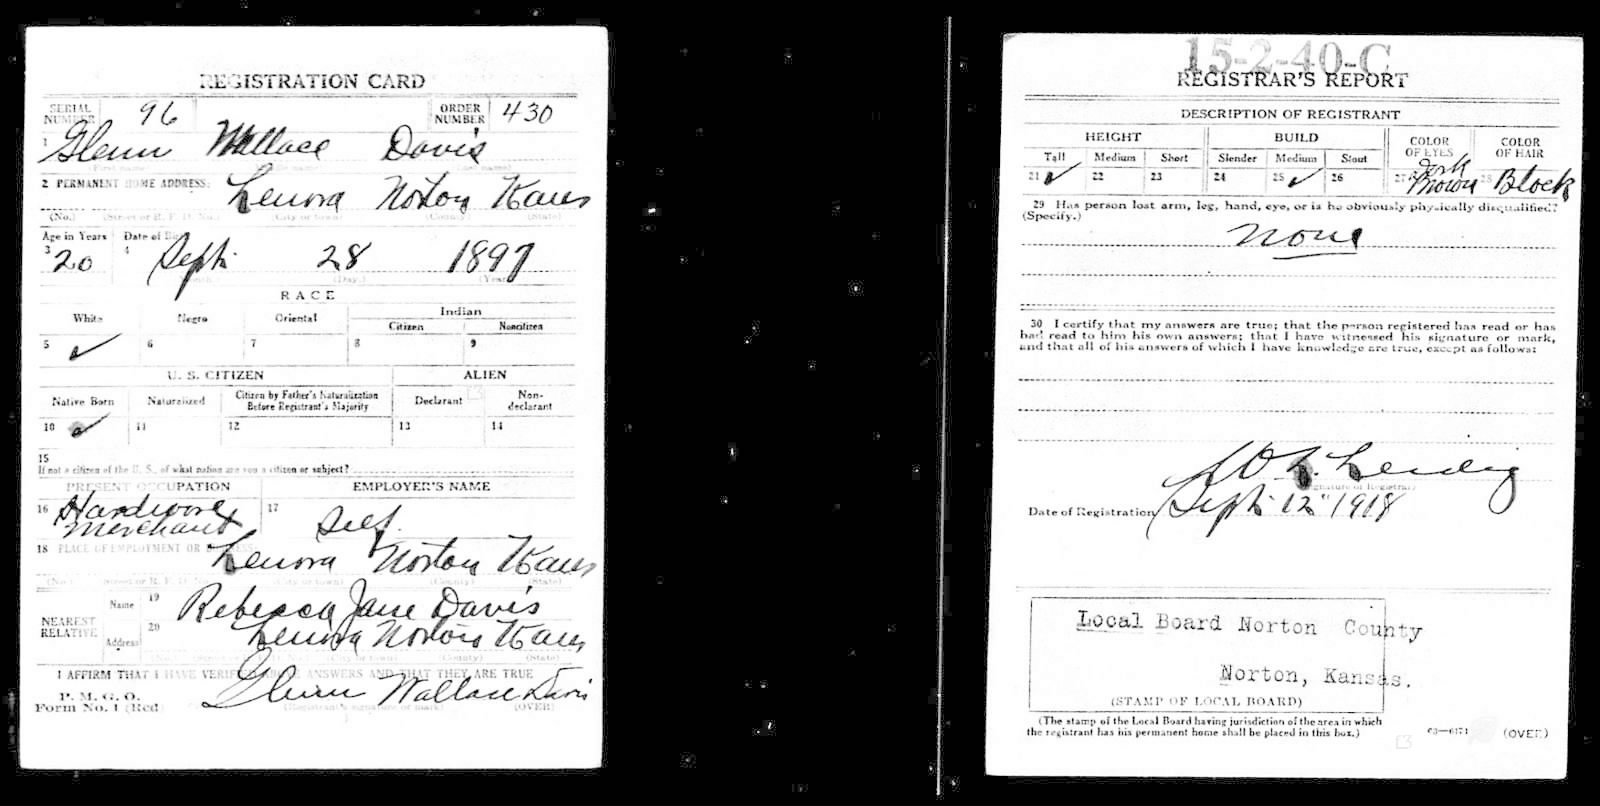 REGISTRATION CARD
SERIAL NUMBER 96 ORDER NUMBER 430
1 Glenn Wallace Davis
2 PERMANENT HOME ADDRESS: Lenora Norton Kans
(No.) (Street or R. F. D. No.) (City or town) (County) (State)
Age in Years Date of Birth
3 20 4 Sept. 28 1897
(Day) (Year)
RACE
White Negro Oriental Indian
Citizen Noncitizen
5 ✓ 6 7 8 9
U. S. CITIZEN ALIEN
Native Born Naturalized Citizen by Father's Naturalization Before Registrant's Majority Declarant Non-declarant
10 ✓ 11 12 13 14
15
If not a citizen of the U. S., of what nation are you a citizen or subject?
PRESENT OCCUPATION EMPLOYER'S NAME
16 Hardware Merchant 17 Self.
18 PLACE OF EMPLOYMENT OR BUSINESS
Lenora Norton Kans
(No.) (Street or R. F. D. No.) (City or town) (County) (State)
NEAREST RELATIVE Name 19 Rebecca Jane Davis
Address 20 Lenora Norton Kans
(No.) (City or town) (County) (State)
I AFFIRM THAT I HAVE VERIFIED ABOVE ANSWERS AND THAT THEY ARE TRUE
P. M. G. O.
Form No. 1 (Red) Glenn Wallace Davis
(Registrant's signature or mark) (OVER)
15-2-40-C
REGISTRAR'S REPORT
DESCRIPTION OF REGISTRANT
HEIGHT BUILD COLOR OF EYES COLOR OF HAIR
Tall Medium Short Slender Medium Stout
21 ✓ 22 23 24 25 ✓ 26 27 Dark Brown 28 Black
29 Has person lost arm, leg, hand, eye, or is he obviously physically disqualified?
(Specify.)
None
30 I certify that my answers are true; that the person registered has read or has
had read to him his own answers; that I have witnessed his signature or mark,
and that all of his answers of which I have knowledge are true, except as follows:
(Signature of Registrar)
Date of Registration Sept. 12" 1918
Local Board Norton County
Norton, Kansas.
(STAMP OF LOCAL BOARD)
(The stamp of the Local Board having jurisdiction of the area in which
the registrant has his permanent home shall be placed in this box.)
63—6171 (OVER)